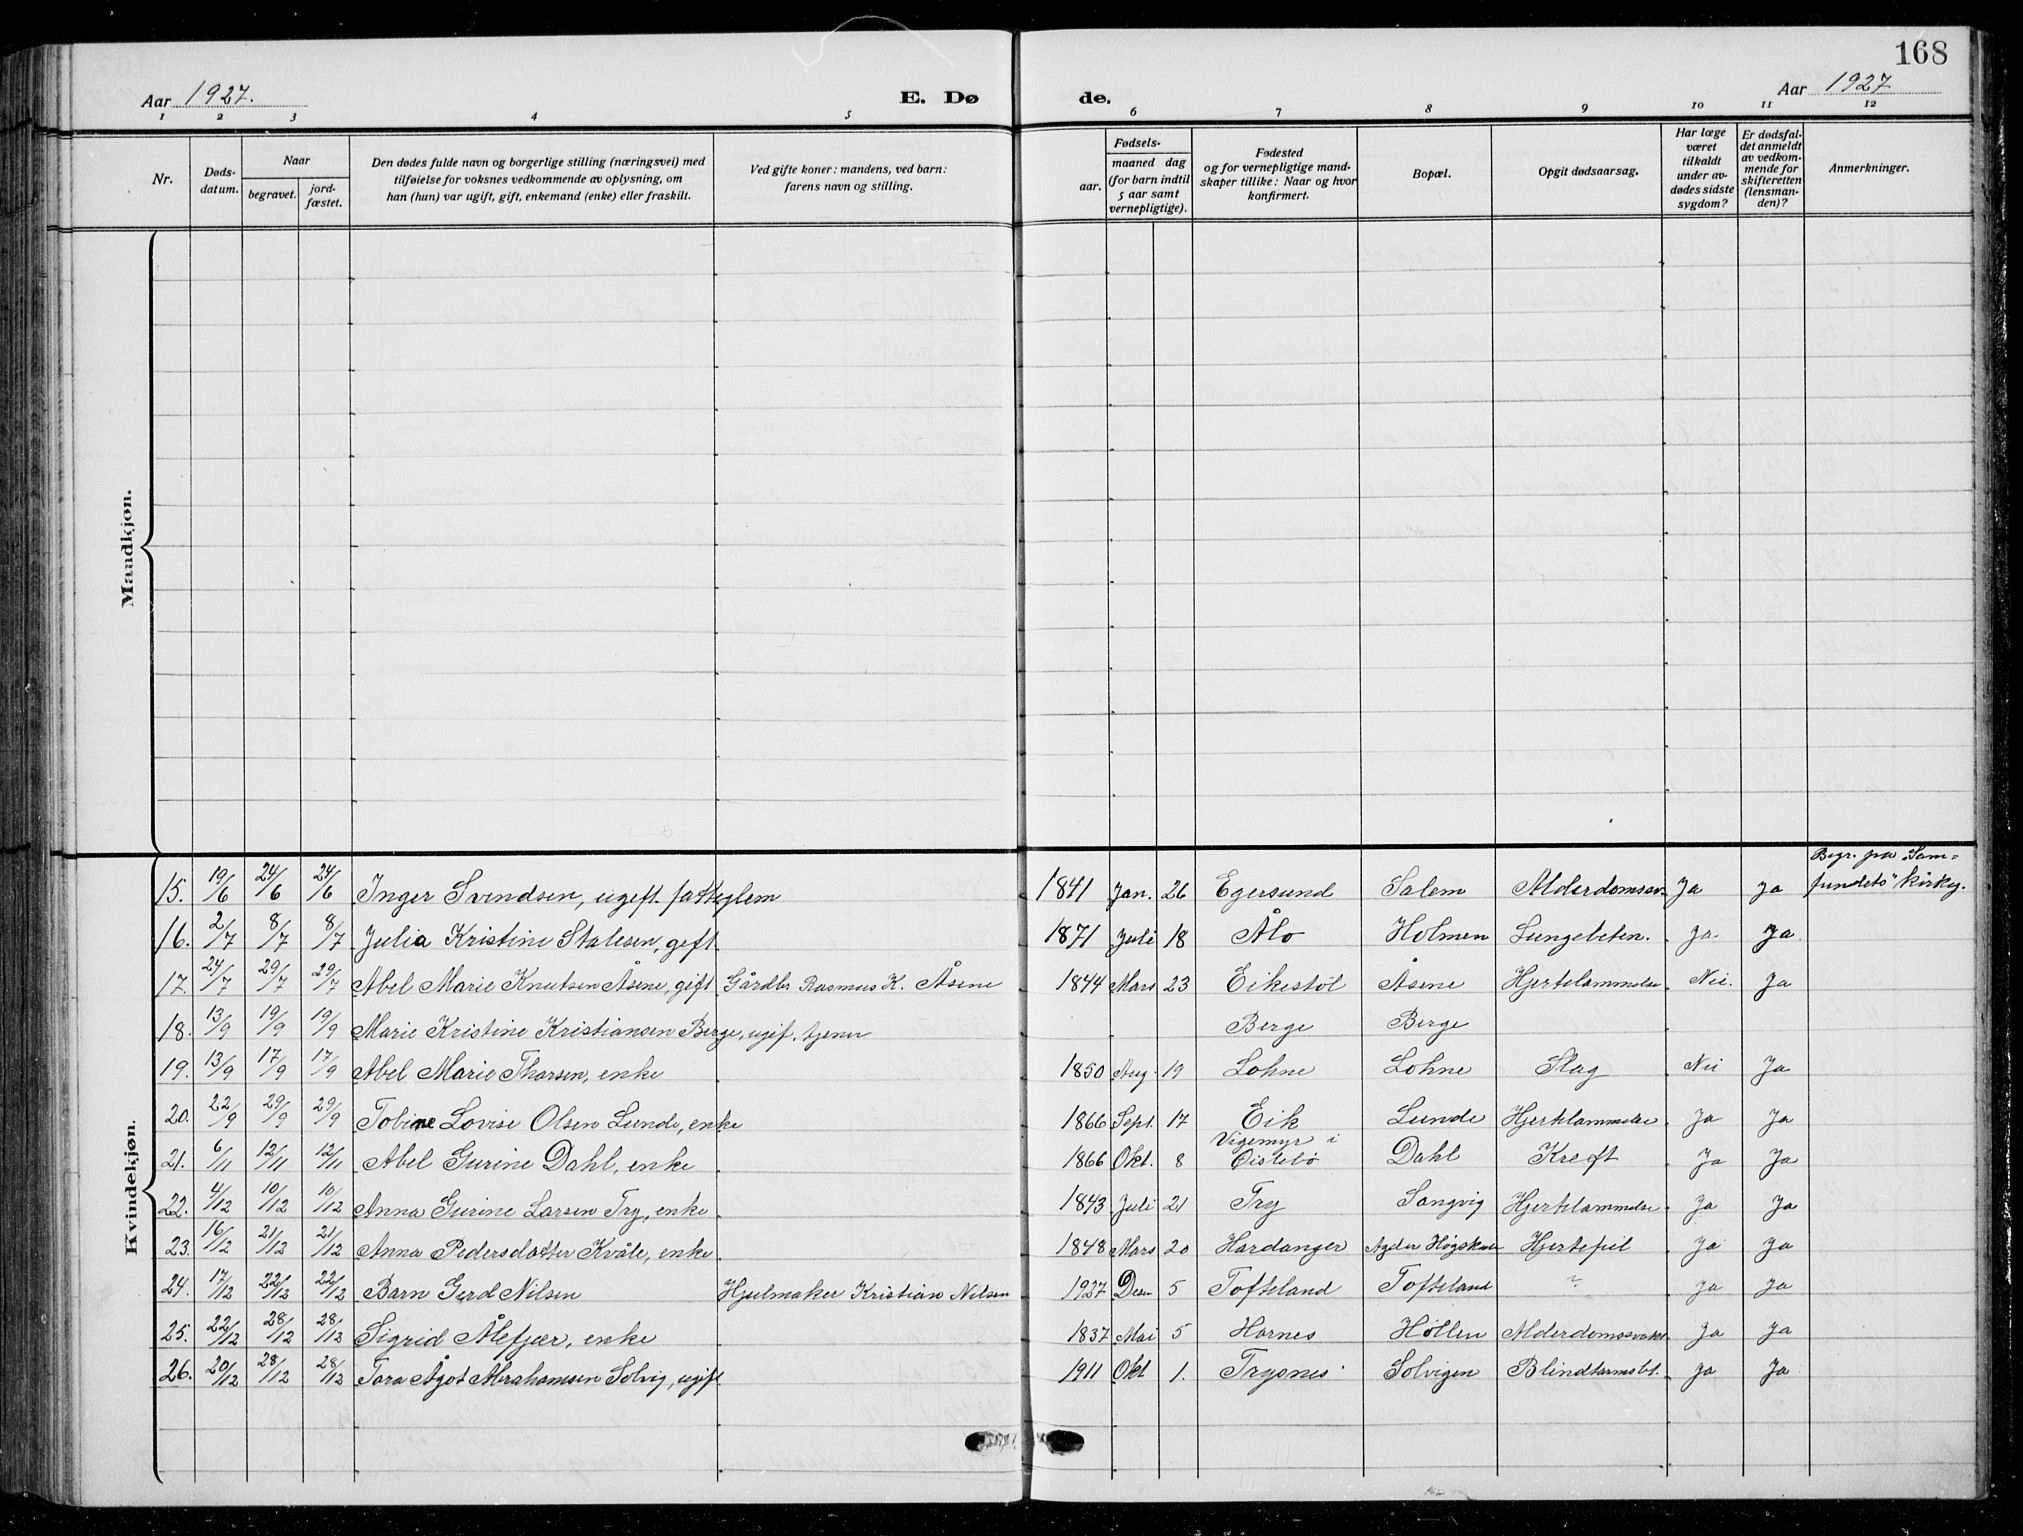 168
Aar 1927.
E. Dø
de.
Aar 1927
1 2 3 4 5 6 7 8 9 10 11 12
Nr.
Døds-
datum.
Naar
begravet.
jord-
fæstet.
Den dødes fulde navn og borgerlige stilling (næringsvei) med
tilføielse for voksnes vedkommende av oplysning, om
han (hun) var ugift, gift, enkemand (enke) eller fraskilt.
Ved gifte koner: mandens, ved barn:
farens navn og stilling.
Fødsels-
aar.
maaned dag
(for barn indtil
5 aar samt
vernepligtige).
Fødested
og for vernepligtige mand-
skaper tillike: Naar og hvor
konfirmert.
Bopæl.
Opgit dødsaarsag.
Har læge
været
tilkaldt
under av-
dødes sidste
sygdom?
Er dødsfal-
det anmeldt
av vedkom-
mende for
skifteretten
(lensman-
den)?
Anmerkninger.
Mandkjøn.
Kvindekjøn.
Begr. paa "Sam=
15. 19/6 24/6 24/6 Inger Svendsen, ugift fattiglem 1841 Jan. 26 Egersund Salem Alderdomssv. Ja Ja fundets" kirkeg.
16. 2/7 8/7 8/7 Julia Kristine Stalesen, gift 1871 Juli 18 Ålo Holmen Lungebeten. Ja. Ja.
17. 24/7 29/7 29/7 Abel Marie Knutsen Åsene, gift Gårdbr Rasmus K. Åsene 1844 Mars 23 Eikestøl Åsene Hjertelammelse Nei. Ja
18. 13/9 19/9 19/9 Marie Kristine Kristiansen Berge, ugif. tjener Berge Berge
19. 13/9 17/9 17/9 Abel Marie Tharsen, enke 1850 Aug. 19 Lohne Lohne Slag Nei Ja
20. 22/9 29/9 29/9 Tobine Lovise Olsen Lunde, enke 1866 Sept. 17 Eik Lunde Hjertelammelse Ja Ja
21. 6/11 12/11 12/11 Abel Gurine Dahl, enke 1866 Okt. 8 Vigemyr i Øislebø Dahl Kreft Ja Ja
22. 4/12 10/12 10/12 Anna Gurine Larsen Try, enke 1843 Juli 21 Try Langvig Hjertelammelse Ja Ja
23. 16/12 21/12 21/12 Anna Pedersdatter Kvåle, enke 1848 Mars 20 Hardanger Agder Høgskule Hjertefeil Ja Ja
24. 17/12 22/12 22/12 Barn Gerd Nilsen Hjulmaker Kristian Nilsen 1927 Desm 5 Tofteland Tofteland ? Ja Ja
25. 22/12 28/12 28/12 Sigrid Ålefjær, enke 1837 Mai 5 Hornes Høllen Alderdomssvakh. Ja Ja
26. 20/12 28/12 28/12 Tora Ågot Abrahamsen Solvig, ugift 1911 Okt 1. Trysnes Solvigen Blindtarmsbt. Ja Ja